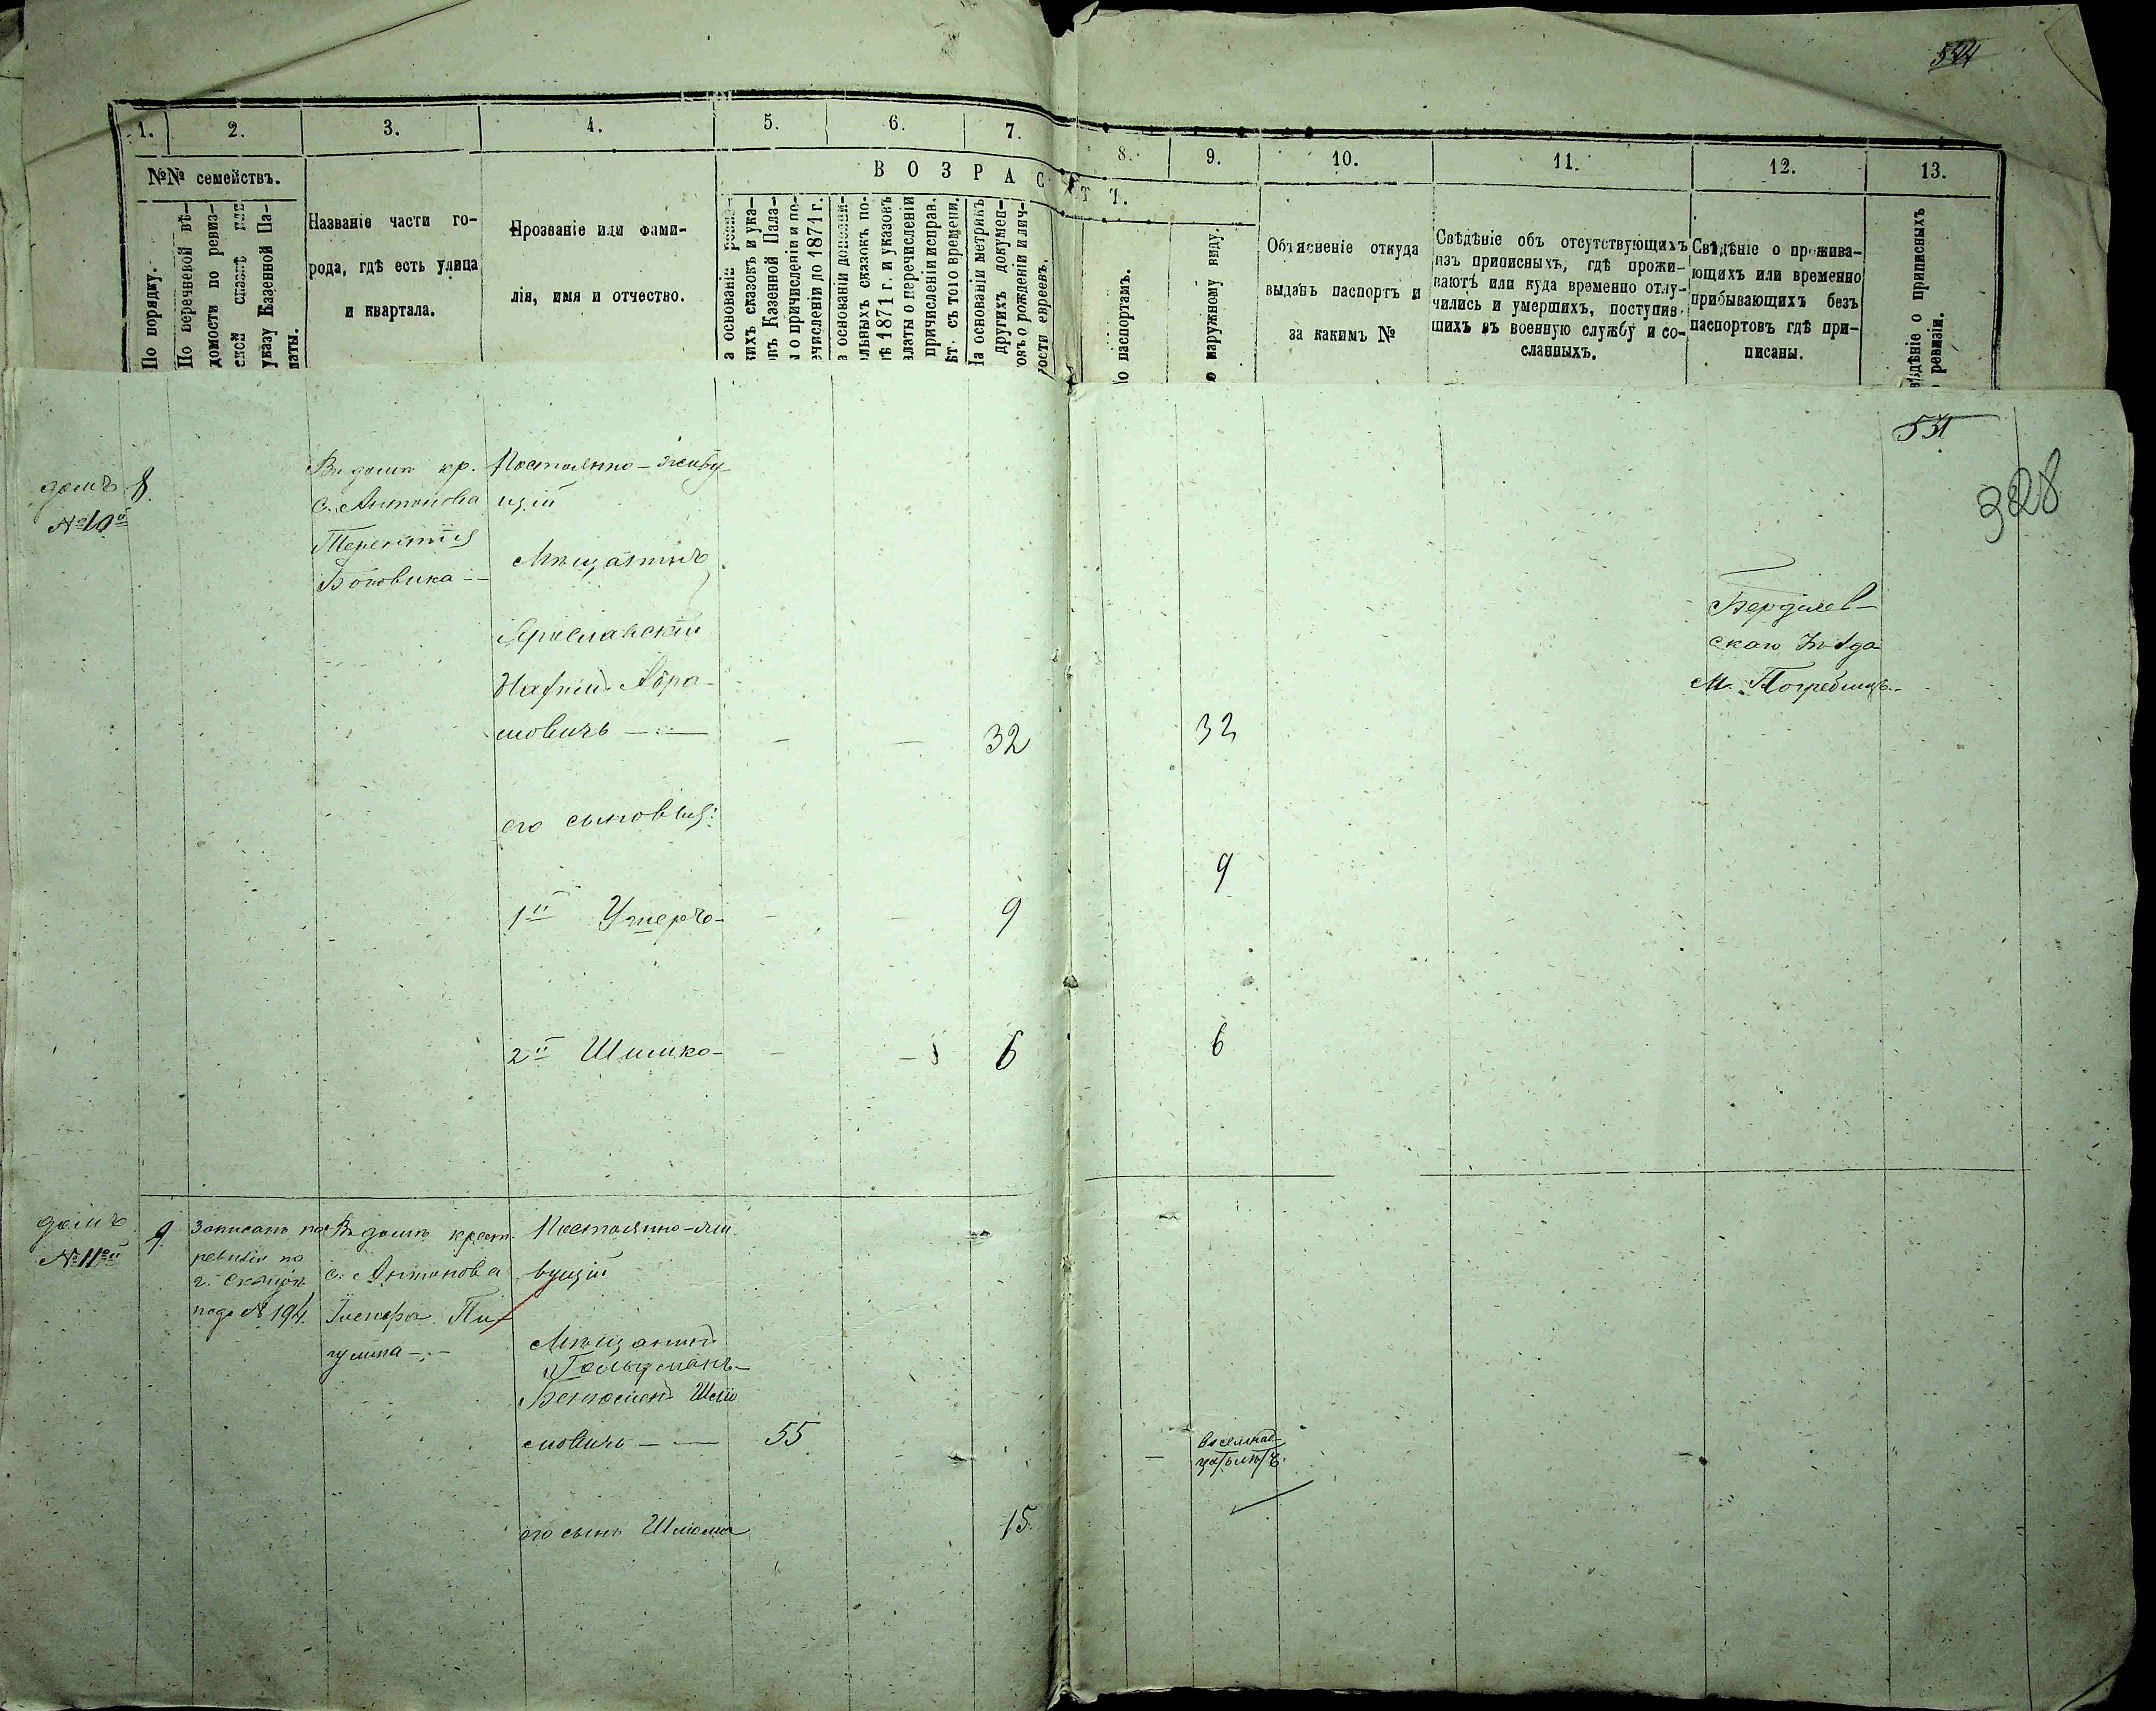 544
1. 2. 3. 4. 5. 6. 7. 8. 9. 10. 11. 12. 13.
№№ семействъ.
В О З Р А С Т Ъ.
По порядку.
По перечневой вѣ-
домости по ревиз-
ской сказкѣ или
указу Казенной Па-
латы.
Названіе части го-
рода, гдѣ есть улица
и квартала.
Прозваніе или фами-
лія, имя и отчество.
а основаніи ревиз-
скихъ сказокъ и ука-
овъ Казенной Пала-
ы о причисленіи и пе-
ечисленіи до 1871 г.
а основаніи дополни-
ельныхъ сказокъ по-
лѣ 1871 г. и указовъ
алаты о перечисленіи
причисленіи исправ.
ѣт. съ того времени.
На основаніи метрикъ
другихъ докумен-
овъ о рожденіи и лич-
ности евреевъ.
о паспортамъ.
о наружному виду.
Объясненіе откуда
выданъ паспортъ и
за какимъ №
Свѣдѣніе объ отсутствующихъ
изъ приписныхъ, гдѣ прожи-
ваютъ или куда временно отлу-
чились и умершихъ, поступив-
шихъ въ военную службу и со-
сланныхъ.
Свѣдѣніе о прожива-
ющихъ или временно
прибывающихъ безъ
паспортовъ гдѣ при-
писаны.
вѣдѣніе о приписныхъ
ревизіи.
328
домъ
№ 10й
8.
Въ домѣ кр.
с. Антонова
Терентія
Боговика
Постоянно-живу-
щій
Мѣщанинъ
Ярославскій
Абра-
мовичъ
32
32
Бердичев-
скаго уѣзда
М. Погребищъ
его сыновья:
1й
9
9
2й Шишко
6
6
домъ
№ 11й
9.
Записанъ по
ревизіи по
г. Сквирѣ
подъ № 194.
Въ домѣ крест.
с. Антонова
Постоянно-жи-
вущій
Мѣщанинъ
Гольцманъ
Беньоменъ Шлio
мовичъ
55
восемнад-
его сынъ Шлiома
15